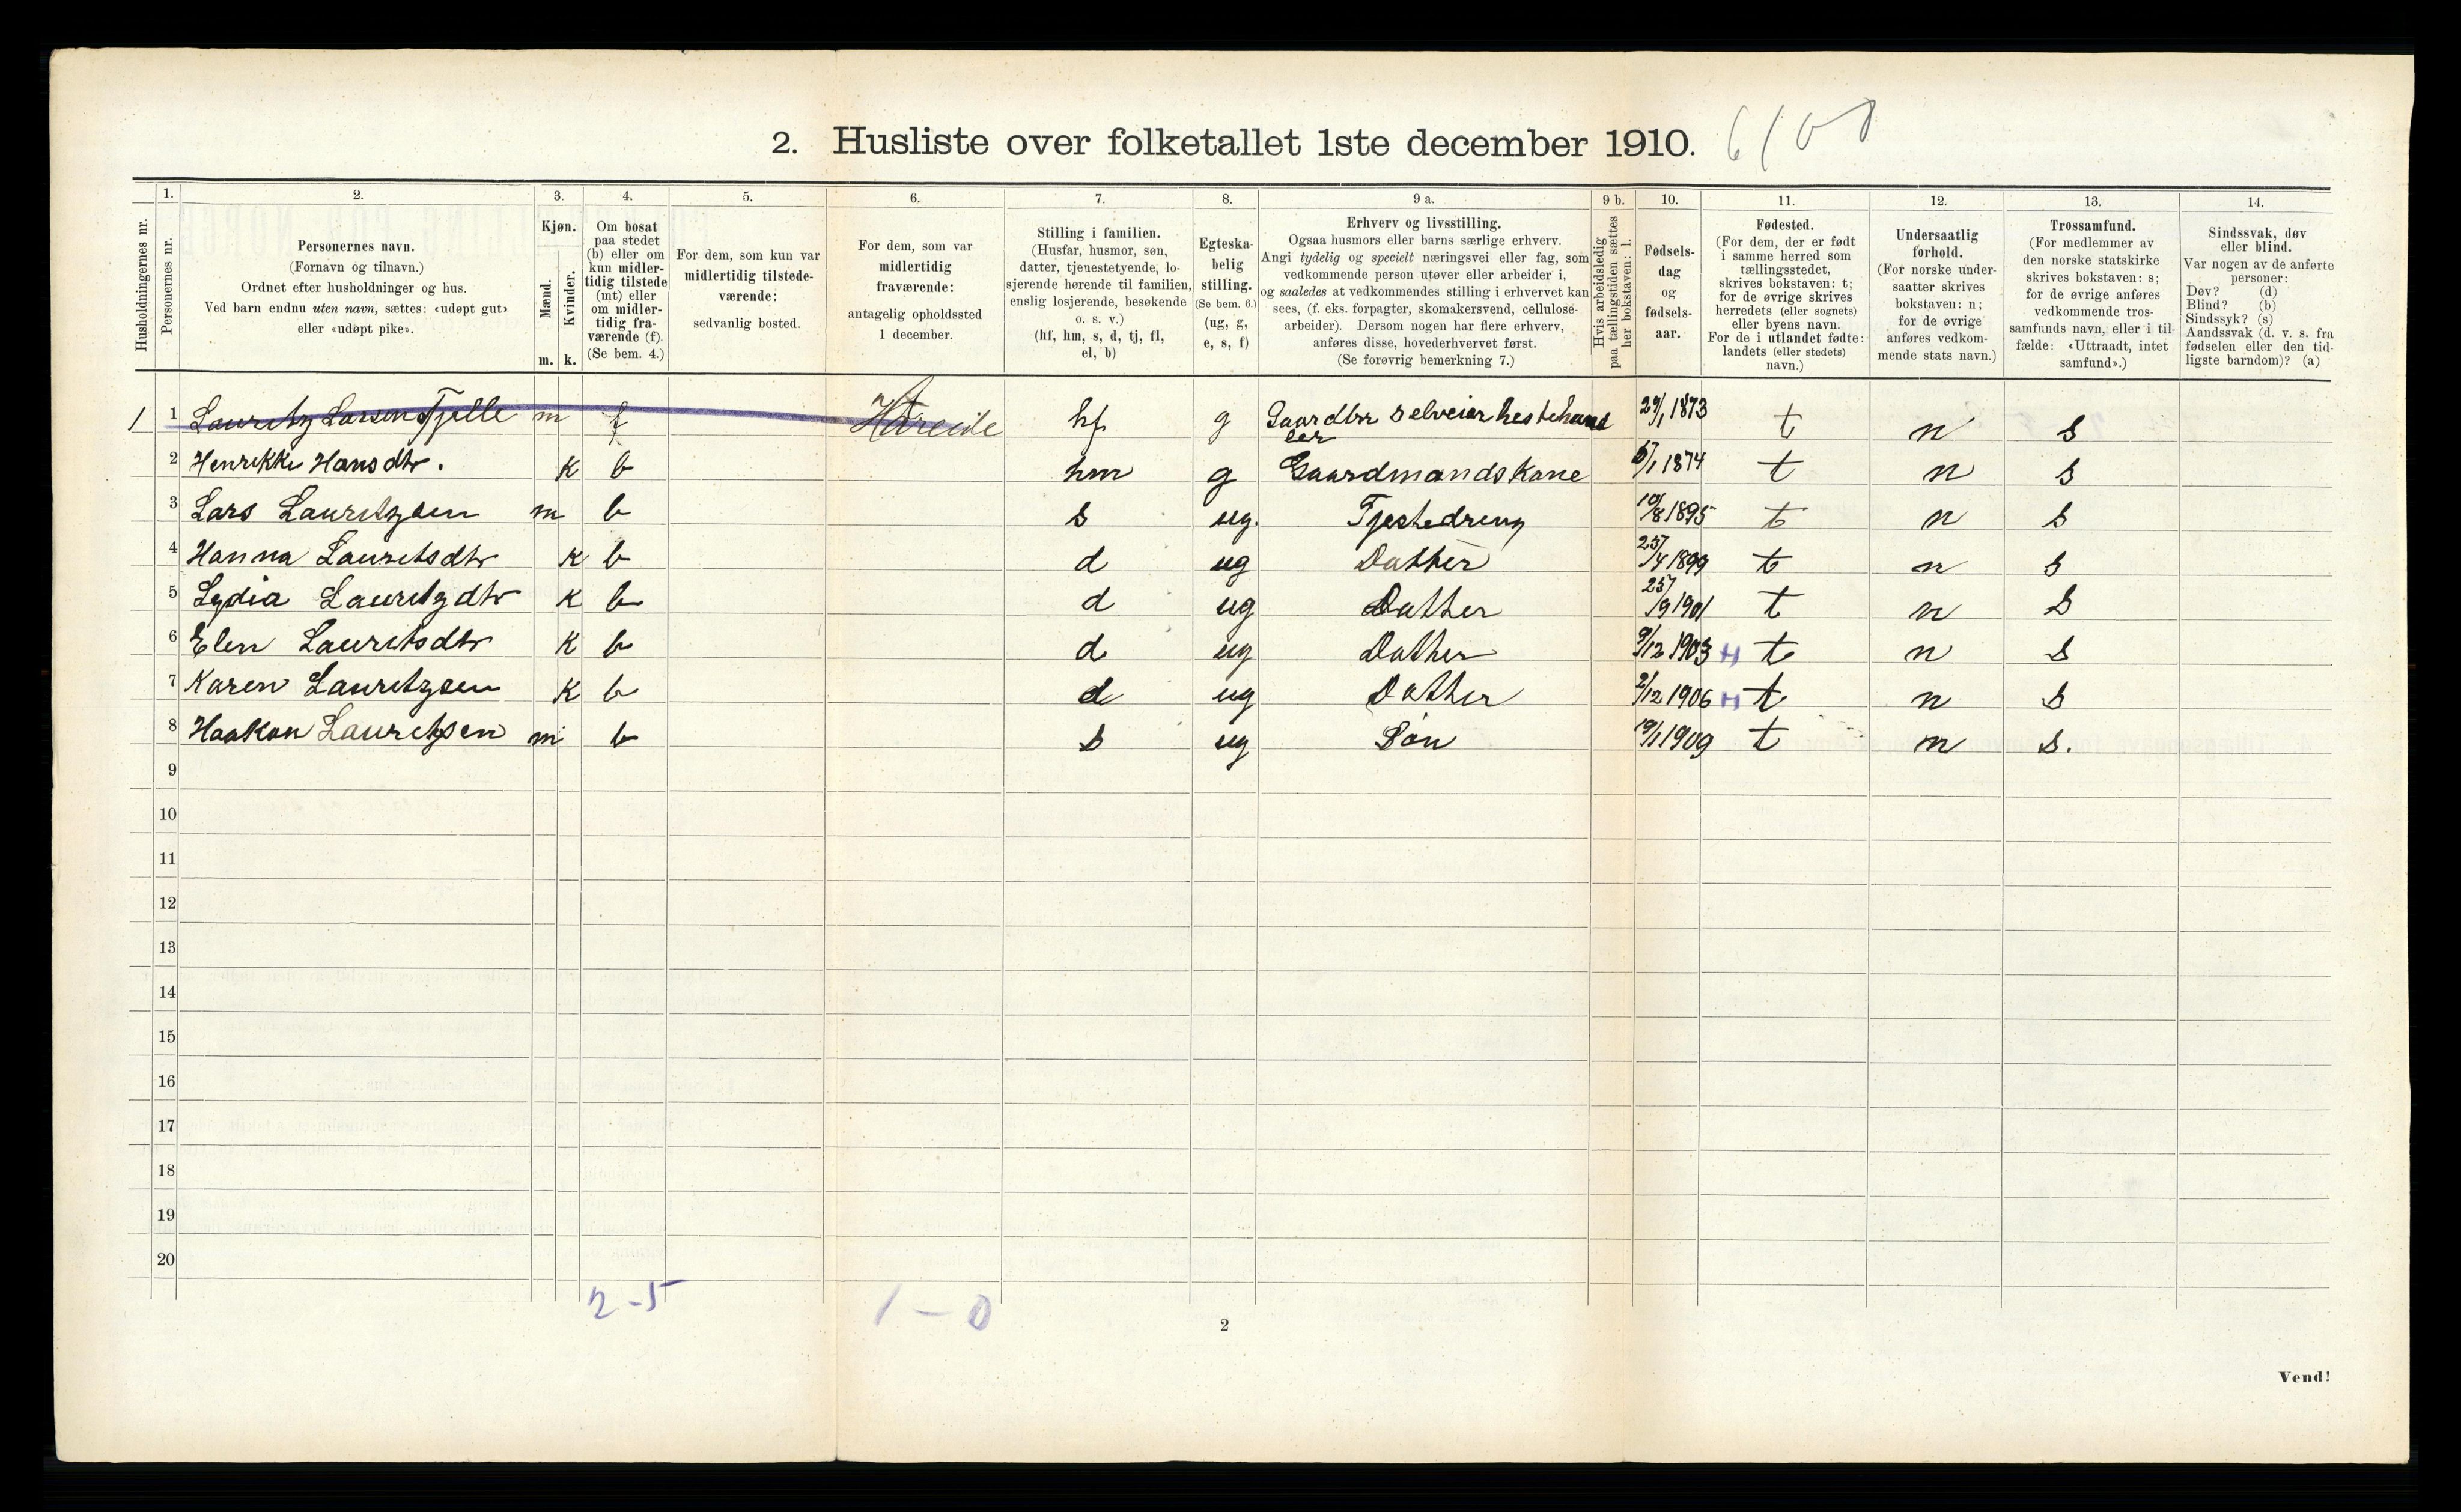 2. Husliste over folketallet 1ste december 1910.
Husholdningernes nr.
1.
Personernes nr.
2.
Personernes navn.
(Fornavn og tilnavn.)
Ordnet efter husholdninger og hus.
Ved barn endnu uten navn, sættes: «udøpt gut»
eller «udøpt pike».
3.
Kjøn.
Mænd.
Kvinder.
m. k.
4.
Om bosat
paa stedet
(b) eller om
kun midler-
tidig tilstede
(mt) eller
om midler-
tidig fra-
værende (f).
(Se bem. 4.)
5.
For dem, som kun var
midlertidig tilstede-
værende:
sedvanlig bosted.
6.
For dem, som var
midlertidig
fraværende:
antagelig opholdssted
1 december.
7.
Stilling i familien.
(Husfar, husmor, søn,
datter, tjenestetyende, lo-
sjerende hørende til familien,
enslig losjerende, besøkende
o. s. v.)
(hf, hm, s, d, tj, fl,
el, b)
8.
Egteska-
belig
stilling.
(Se bem. 6.)
(ug, g,
e, s, f)
9 a.
Erhverv og livsstilling.
Ogsaa husmors eller barns særlige erhverv.
Angi tydelig og specielt næringsvei eller fag, som
vedkommende person utøver eller arbeider i,
og saaledes at vedkommendes stilling i erhvervet kan
sees, (f. eks. forpagter, skomakersvend, cellulose-
arbeider). Dersom nogen har flere erhverv,
anføres disse, hovederhvervet først.
(Se forøvrig bemerkning 7.)
9 b.
Hvis arbeidsledig
paa tællingstiden sættes
her bokstaven: l.
10.
Fødsels-
dag
og
fødsels-
aar.
11.
Fødested.
(For dem, der er født
i samme herred som
tællingsstedet,
skrives bokstaven: t;
for de øvrige skrives
herredets (eller sognets)
eller byens navn.
For de i utlandet fødte:
landets (eller stedets)
navn.)
12.
Undersaatlig
forhold.
(For norske under-
saatter skrives
bokstaven: n;
for de øvrige
anføres vedkom-
mende stats navn.)
13.
Trossamfund.
(For medlemmer av
den norske statskirke
skrives bokstaven: s;
for de øvrige anføres
vedkommende tros-
samfunds navn, eller i til-
fælde: «Uttraadt, intet
samfund».)
14.
Sindssvak, døv
eller blind.
Var nogen av de anførte
personer:
Døv? (d)
Blind? (b)
Sindssyk? (s)
Aandssvak (d. v. s. fra
fødselen eller den tid-
ligste barndom)? (a)
1 1 Lauritz Larsen Tjelle m f Hareide hf g Gaardbr selveier hestehand 29/1 1873 t n s
ler
2 Henrikke Hansdtr. k b hm g Gaardmandskone 5/1 1874 t n s
3 Lars Lauritzsen m b s ug. Tjestedreng 10/8 1895 t n s
4 Hanna Lauritsdtr k b d ug Datter 25/4 1899 t n s
5 Lydia Lauritzdtr k b d ug Datter 25/9 1901 t n s
6 Elen Lauritsdtr k b d ug Datter 9/12 1903 H t n s
7 Karen Lauritzsen k b d ug Datter 2/12 1906 H t n s
8 Haakon Lauritzsen m b s ug Søn 19/1 1909 t n s.
9
10
11
12
13
14
15
16
17
18
19
20
2 - 5 1 - 0
2
Vend!